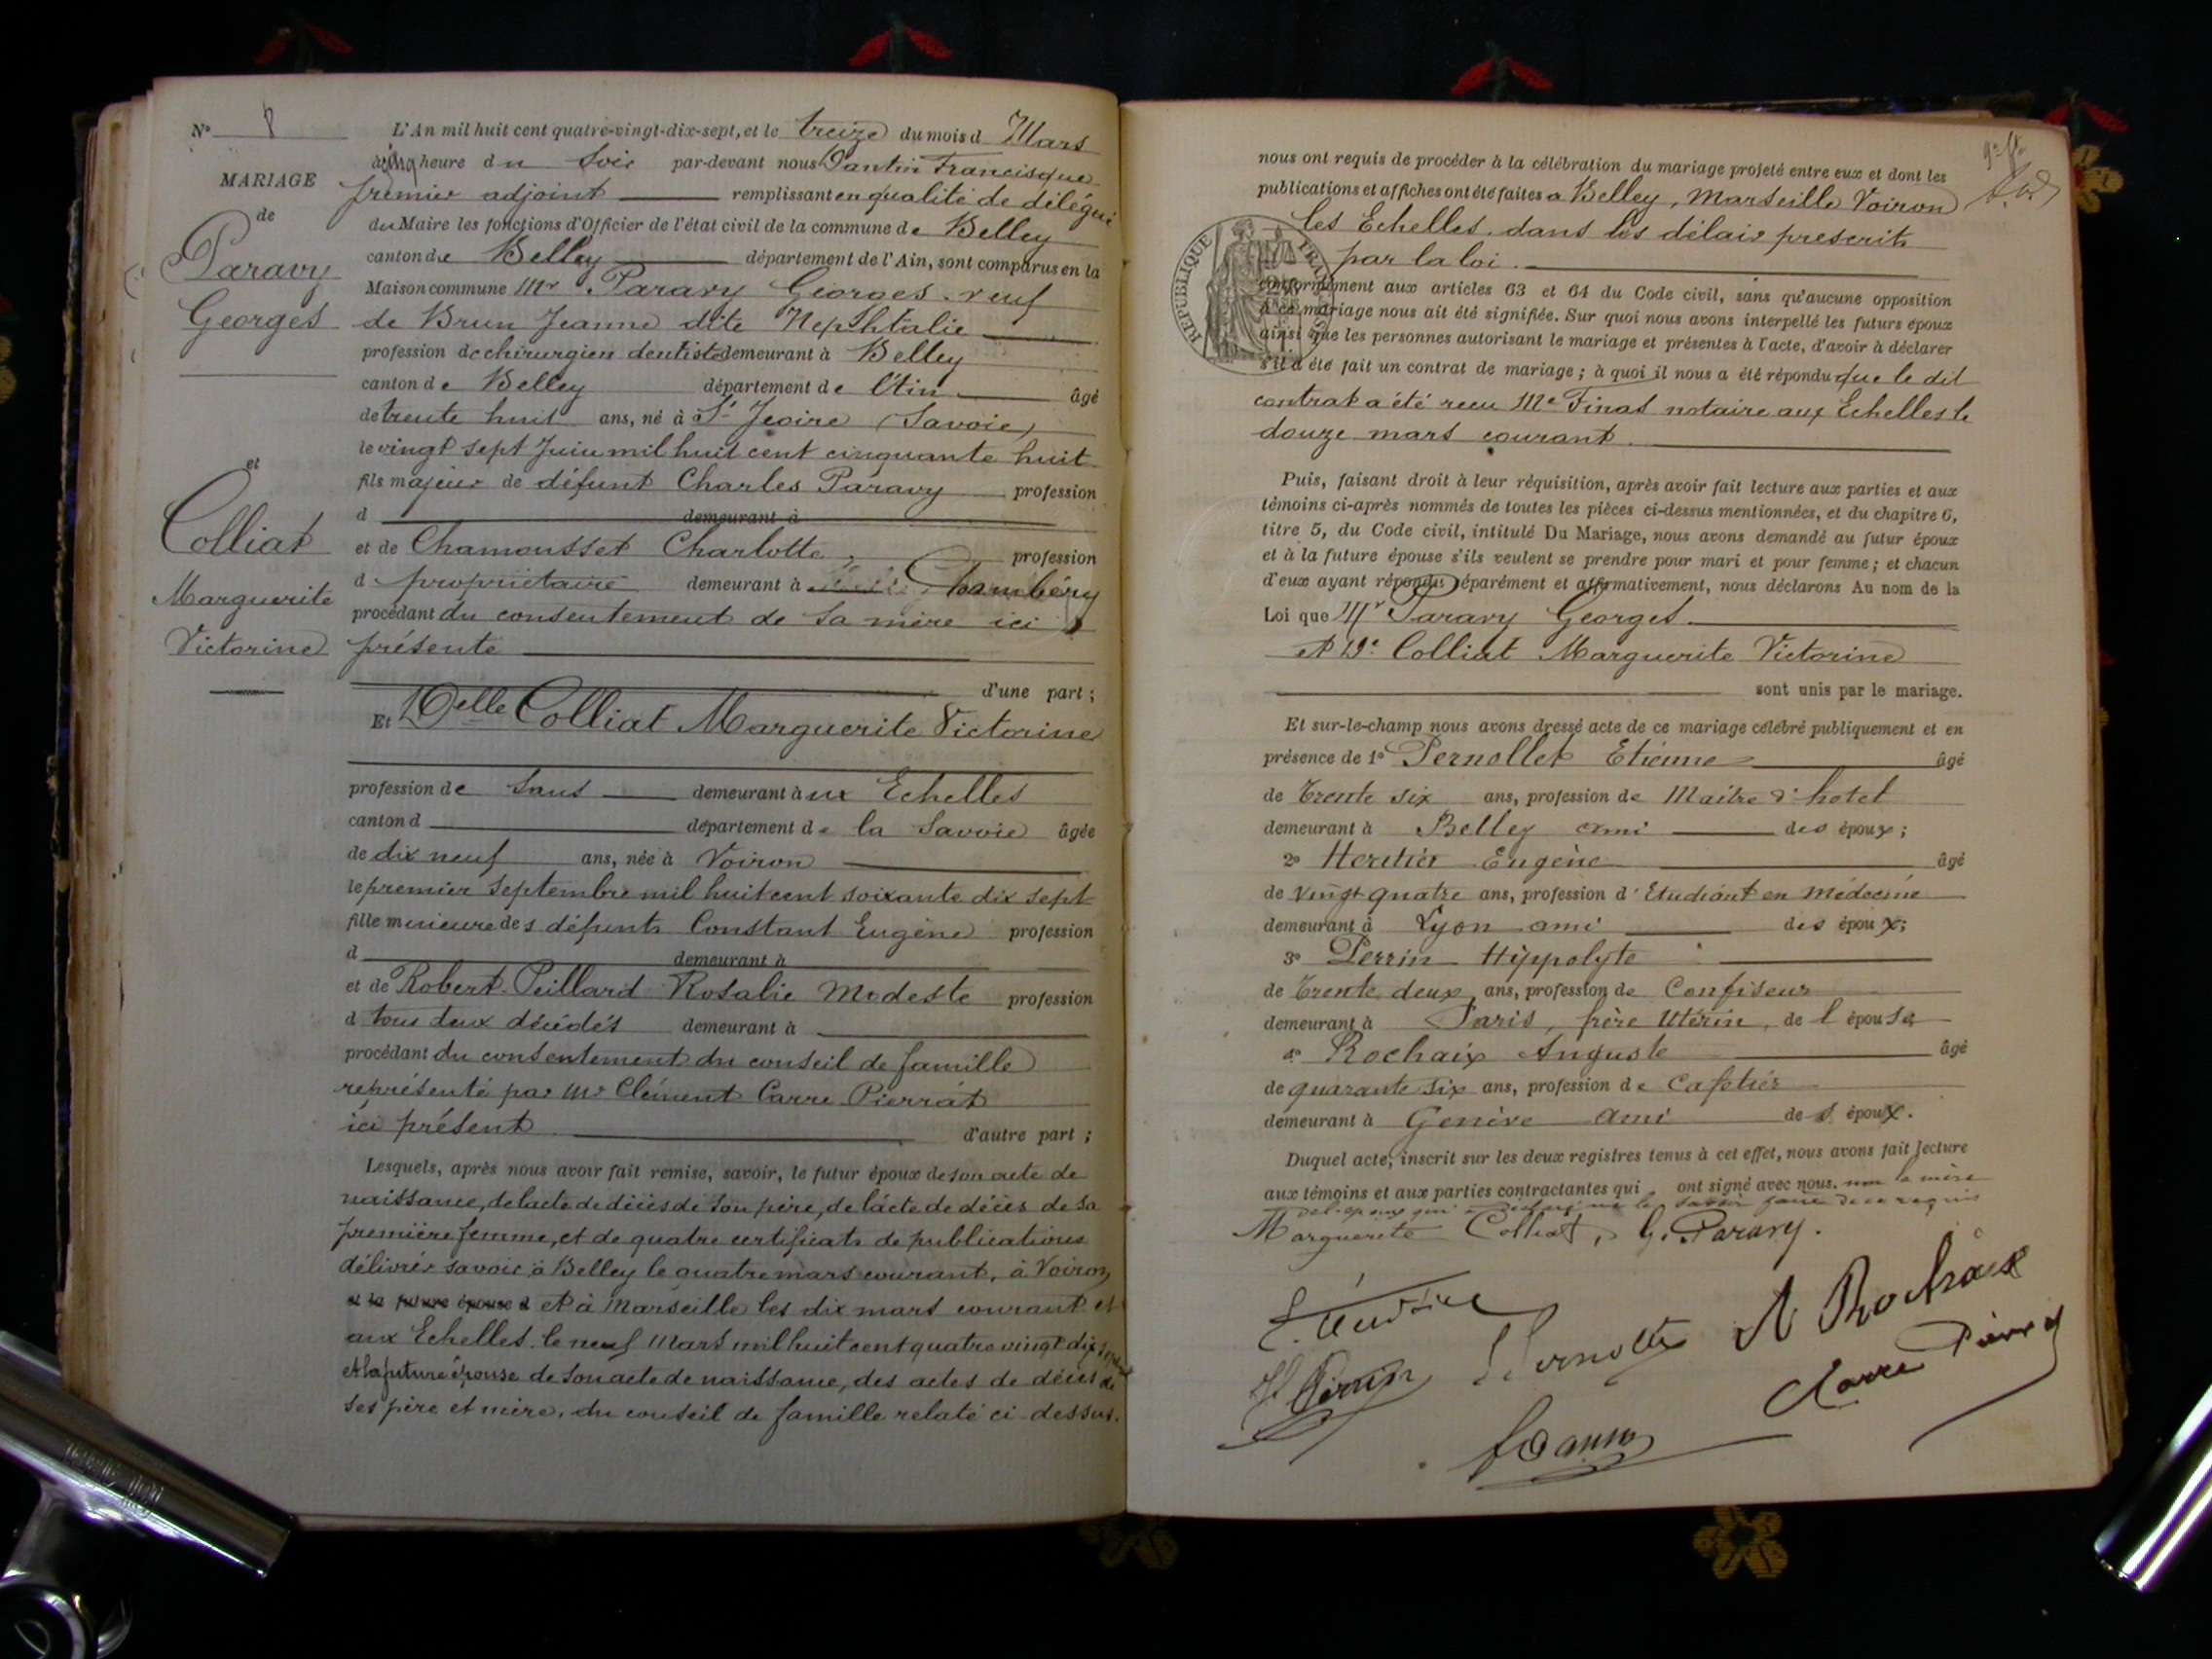 N° 8
MARIAGE
de
Paravy
Georges
et
Colliat
Marguerite
Victorine
L'An mil huit cent quatre-vingt-dix-sept, et le treize du mois d Mars
à cinq heure du Soir par-devant nous Francisque
premier adjoint remplissant en qualité de délégué
du Maire les fonctions d'Officier de l'état civil de la commune de Belley
canton de Belley département de l'Ain, sont comparus en la
Maison commune Mr Paravy Georges veuf
de Brun Jeanne dite Nephtalie
profession de chirurgien dentiste demeurant à Belley
canton de Belley département de l'Ain âgé
de trente huit ans, né à St Jeoire (Savoie)
le vingt sept Juin mil huit cent cinquante huit
fils majeur de défunt Charles Paravy profession
d demeurant à
et de Chamousset Charlotte, profession
d propriétaire demeurant à Chambéry
procédant du consentement de sa mère ici
présente
d'une part ;
Et Delle Colliat Marguerite Victorine
profession de Sans demeurant à ux Echelles
canton d département de la Savoie âgée
de dix neuf ans, née à Voiron
le premier Septembre mil huit cent soixante dix sept
fille mineure des défunts Constant Eugène profession
d demeurant à
et de Robert-Peillard Rosalie Modeste profession
d tous deux décédés demeurant à
procédant du consentement du conseil de famille
représenté par Mr Clément Carre Pierrat
ici présent d'autre part ;
Lesquels, après nous avoir fait remise, savoir, le futur époux de son acte de
naissance, de l'acte de décès de son père, de l'acte de décès de sa
première femme, et de quatre certificats de publications
délivrés savoir à Belley le quatre mars courant, à Voiron
et la future épouse d et à Marseille les dix mars courant et
aux Echelles le neuf Mars mil huit cent quatre vingt dix sept
et la future épouse de son acte de naissance, des actes de décès de
ses père et mère, du conseil de famille relaté ci-dessus.
nous ont requis de procéder à la célébration du mariage projeté entre eux et dont les
publications et affiches ont été faites a Belley, Marseille Voiron
les Echelles dans les délais prescrits
par la loi.
REPUBLIQUE FRANCAISE
conformément aux articles 63 et 64 du Code civil, sans qu'aucune opposition
à ce mariage nous ait été signifiée. Sur quoi nous avons interpellé les futurs époux
ainsi que les personnes autorisant le mariage et présentes à l'acte, d'avoir à déclarer
s'il a été fait un contrat de mariage ; à quoi il nous a été répondu que le dit
contrat a été recu Me Finat notaire aux Echelles le
douze mars courant.
Puis, faisant droit à leur réquisition, après avoir fait lecture aux parties et aux
témoins ci-après nommés de toutes les pièces ci-dessus mentionnées, et du chapitre 6,
titre 5, du Code civil, intitulé Du Mariage, nous avons demandé au futur époux
et à la future épouse s'ils veulent se prendre pour mari et pour femme ; et chacun
d'eux ayant répondu séparément et affirmativement, nous déclarons Au nom de la
Loi que Mr Paravy Georges
et De Colliat Marguerite Victorine
sont unis par le mariage.
Et sur-le-champ nous avons dressé acte de ce mariage célébré publiquement et en
présence de 1° Pernollet Etienne âgé
de Trente six ans, profession de Maître d'hotel
demeurant à Belley ami des époux ;
2° Heritier Eugène âgé
de vingt quatre ans, profession d'Etudiant en Médecine
demeurant à Lyon ami des époux ;
3° Perrin Hippolyte
de Trente deux ans, profession de Confiseur
demeurant à Paris, frère Utérin, de l épouse
4° Rochaix Auguste âgé
de quarante six ans, profession de Cafetier
demeurant à Genève ami des époux.
Duquel acte, inscrit sur les deux registres tenus à cet effet, nous avons fait lecture
aux témoins et aux parties contractantes qui ont signé avec nous. non la mère
de l'époux qui a déclaré ne le savoir faire de ce requis
Marguerite Colliat, G. Paravy.
A Rochaix
H Perrin Pernollet Carre Pierrat